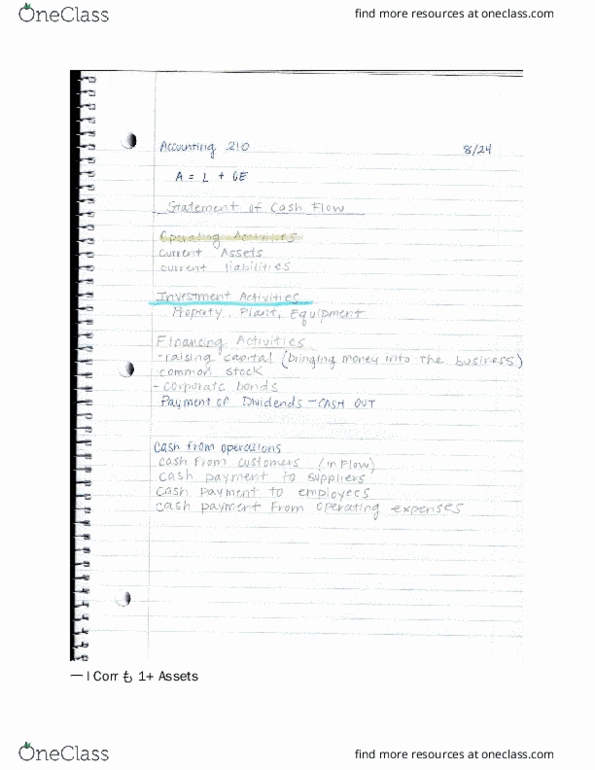 OneClass
find more resources at oneclass.com
Accounting 210
8/24
A = L + OE
Statement of Cash Flow
Operating Activities
current Assets
current liabilities
Investment Activities
Property, Plant, Equipment
Financing Activities
-raising capital (bringing money into the business)
common stock
- corporate bonds
Payment of Dividends - CASH OUT
cash from operations
cash from customers (in Flow)
cash payment to suppliers
cash payment to employees
cash payment from operating expenses
— I Corr ȶ 1+ Assets
OneClass
find more resources at oneclass.com